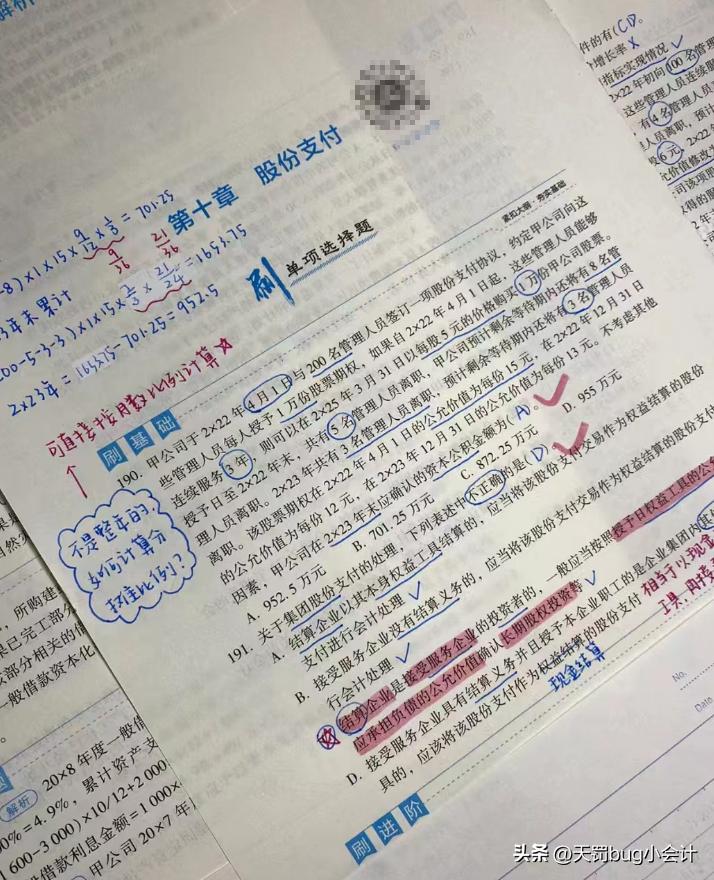 解析
第十章 股份支付
紧扣大纲·夯实基础
刷 单项选择题
-8)×1×15×9/12×1/3=701.25
9/36 21/36
3年末累计
200-5-3-3)×1×15×2/3×21/24=1653.75
2×23年=1653.75-701.25=952.5
可直接按月数比例计算☆
不是整年的,
如何计算分
摊比例?
刷基础
190. 甲公司于2×22年4月1日与200名管理人员签订一项股份支付协议,约定甲公司向这
些管理人员每人授予1万份股票期权,如果自2×22年4月1日起,这些管理人员能够
连续服务3年,则可以在2×25年3月31日以每股5元的价格购买1万份甲公司股票。
授予日至2×22年末,共有5名管理人员离职,甲公司预计剩余等待期内还将有8名管
理人员离职。2×23年共有3名管理人员离职,预计剩余等待期内还将有3名管理人员
离职。该股票期权在2×22年4月1日的公允价值为每份15元,在2×22年12月31日
的公允价值为每份12元,在2×23年12月31日的公允价值为每份13元。不考虑其他
因素,甲公司在2×23年末应确认的资本公积金额为(A)。
A. 952.5万元 B. 701.25万元 C. 872.25万元 D. 955万元
191. 关于集团股份支付的处理,下列表述中不正确的是(D)
A. 结算企业以其本身权益工具结算的,应当将该股份支付交易作为权益结算的股份
支付进行会计处理
B. 接受服务企业没有结算义务的,应当将该股份支付交易作为权益结算的股份支付
行会计处理
C. 结算企业是接受服务企业的投资者的,一般应当按照授予日权益工具的公允
应承担负债的公允价值确认长期股权投资等
D. 接受服务企业具有结算义务并且授予本企业职工的是企业集团内其
具的,应该将该股份支付作为权益结算的股份支付
现金结算
相当于以现金
刷进阶
件的有(CD。
增长率×
指标实现情况
2×22年初向100名管
这些管理人员连续服
有4名管理人员
人员离职,预计
6元,2×22
允价值修改为
,所购建
果已完工部分
该部分相关的借
一般借款资本化
解析 20×8年度一般借
00%=4.9%,累计资产支
1 600-3 000)×10/12+2 000
借款利息金额=1 000×
甲公司20×7年
No.
Date
头条 @天罚bug小会计